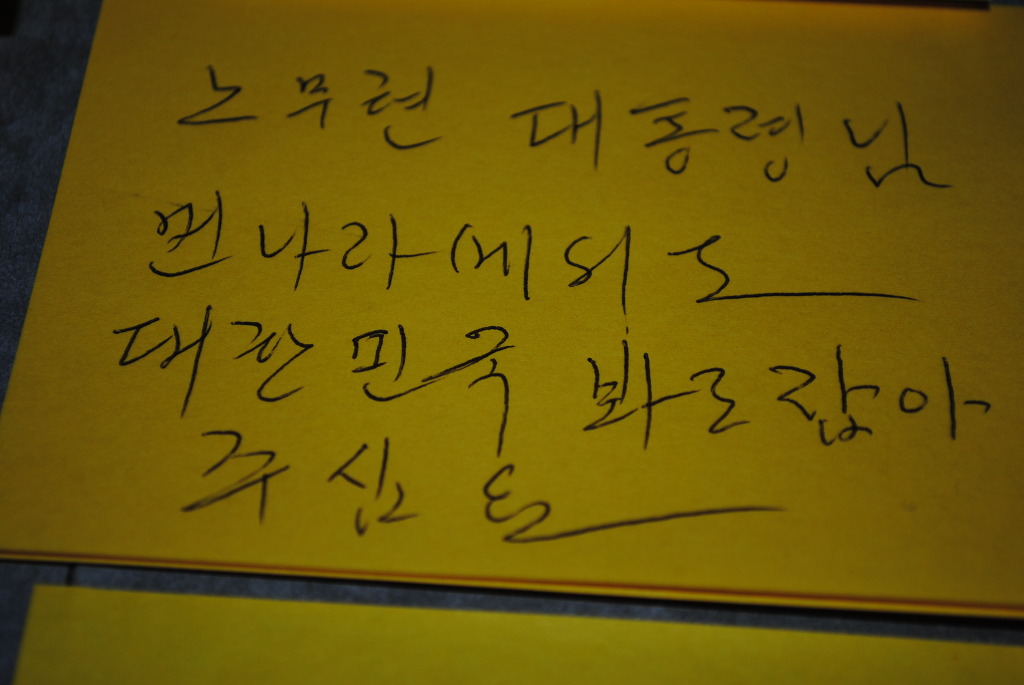 노무현 대통령님
먼나라에서도
대한민국 바로잡아
주십오